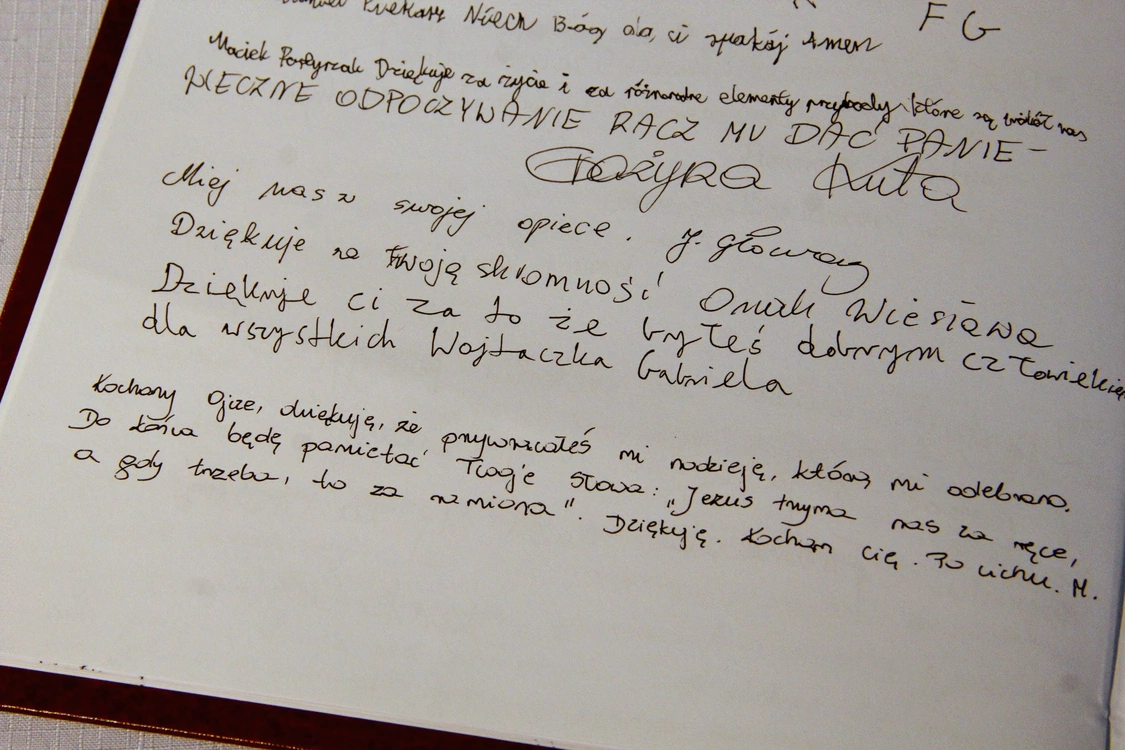 F G
Niech Bóg da, ci spokój Amen
Maciek Dziękuje za życie i za różnorodne elementy przyrody które są wokół nas
WIECZNE ODPOCZYWANIE RACZ MU DAĆ PANIE -
Grażyna Kuta
Miej nas w swojej opiece. J. Głowacz
Dziękuje za Twoją skromność Onak Wiesława
Dziękuje ci za to że byłeś dobrym człowiekiem
dla wszystkich Wojtaczka Gabriela
Kochany Ojcze, dziękuję, że przywracałeś mi nadzieję, którą mi odebrano.
Do końca będę pamiętać Twoje słowa: „Jezus trzyma nas za ręce,
a gdy trzeba, to za ramiona". Dziękuję. Kocham cię. Po cichu. M.